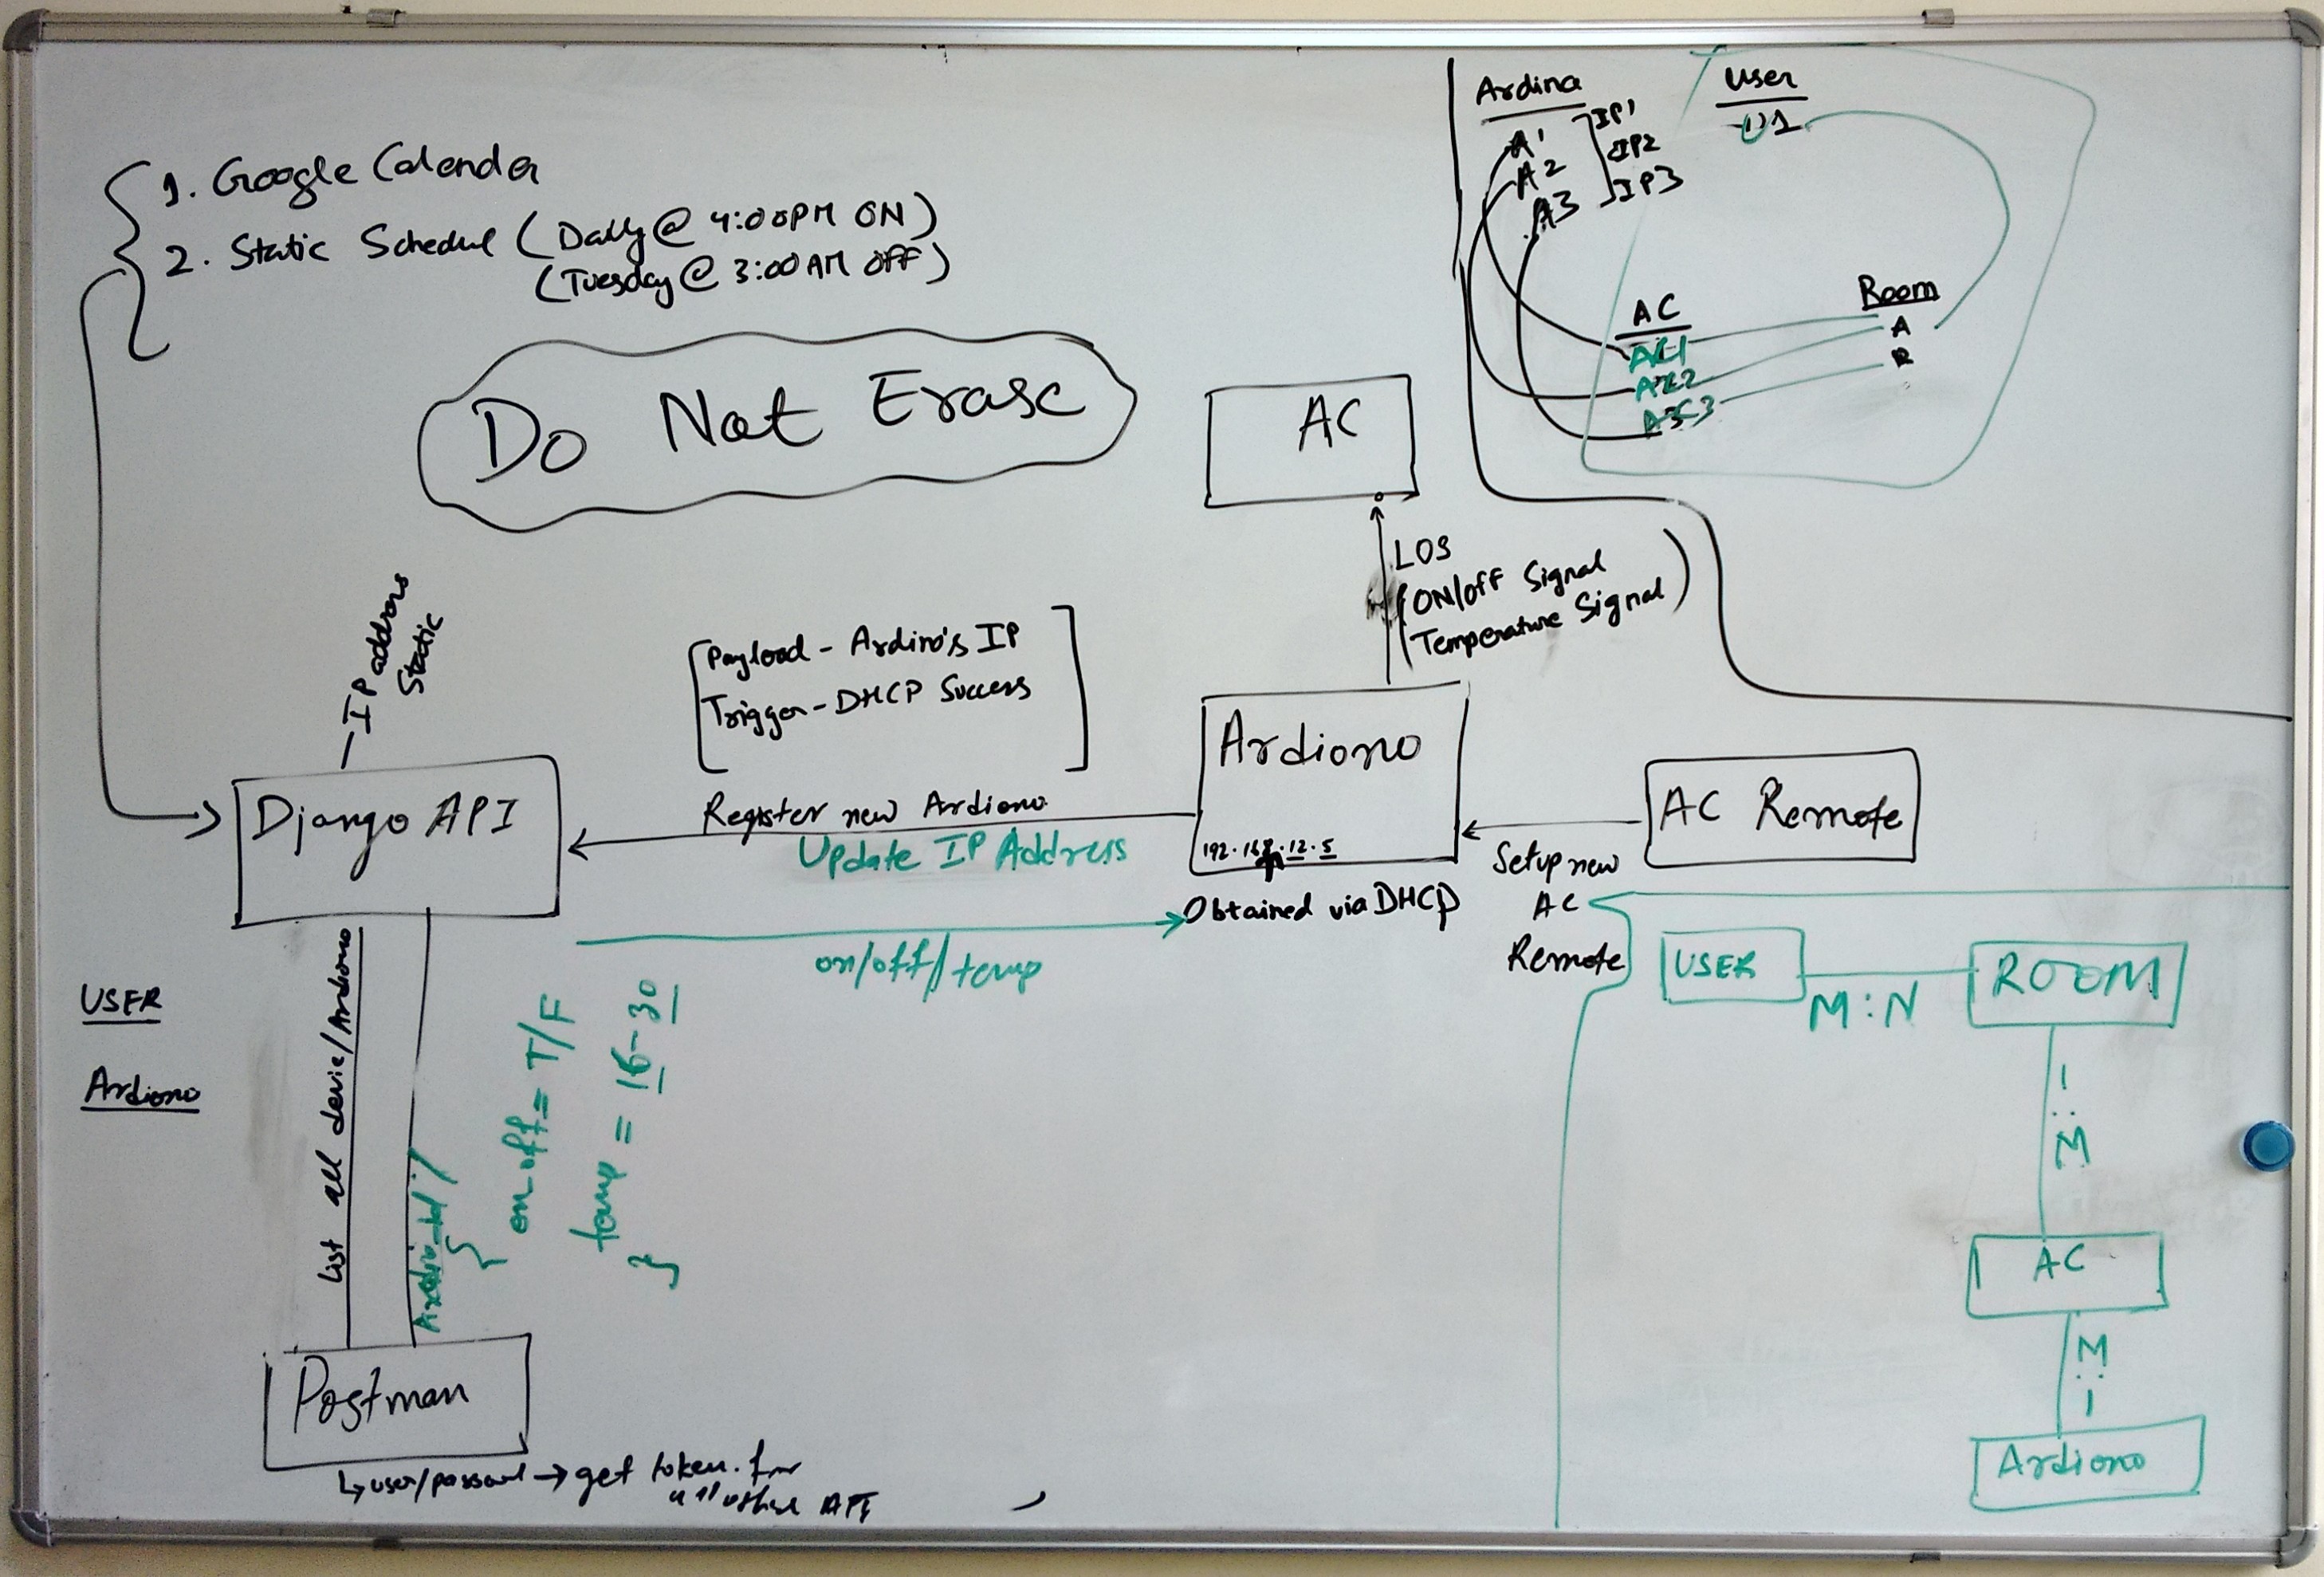 1. Google Calender
2. Static Schedul (Daily @ 4:00PM ON)
(Tuesday @ 3:00 AM OFF)
Do Not Erase
Ardina
A1
A2
A3
IP1
IP2
IP3
User
U1
AC
AC1
AC2
AC3
Room
A
B
AC
LOS
(ON/off Signal
Temperature Signal)
— IP address
Static
Payload - Ardino's IP
Trigger - DHCP Success
Django API
Register new Ardiono
Update IP Address
Ardiono
192.168.12.5
Obtained via DHCP
AC Remote
Setup new
AC
Remote
on/off/temp
USER
Ardiono
List all device/Ardiono
Ardio_id/
{
on_off = T/F
temp = 16-30
}
Postman
↳ user/passowrd → get token. for
all other API
USER
M:N
ROOM
1:M
AC
M:1
Ardiono